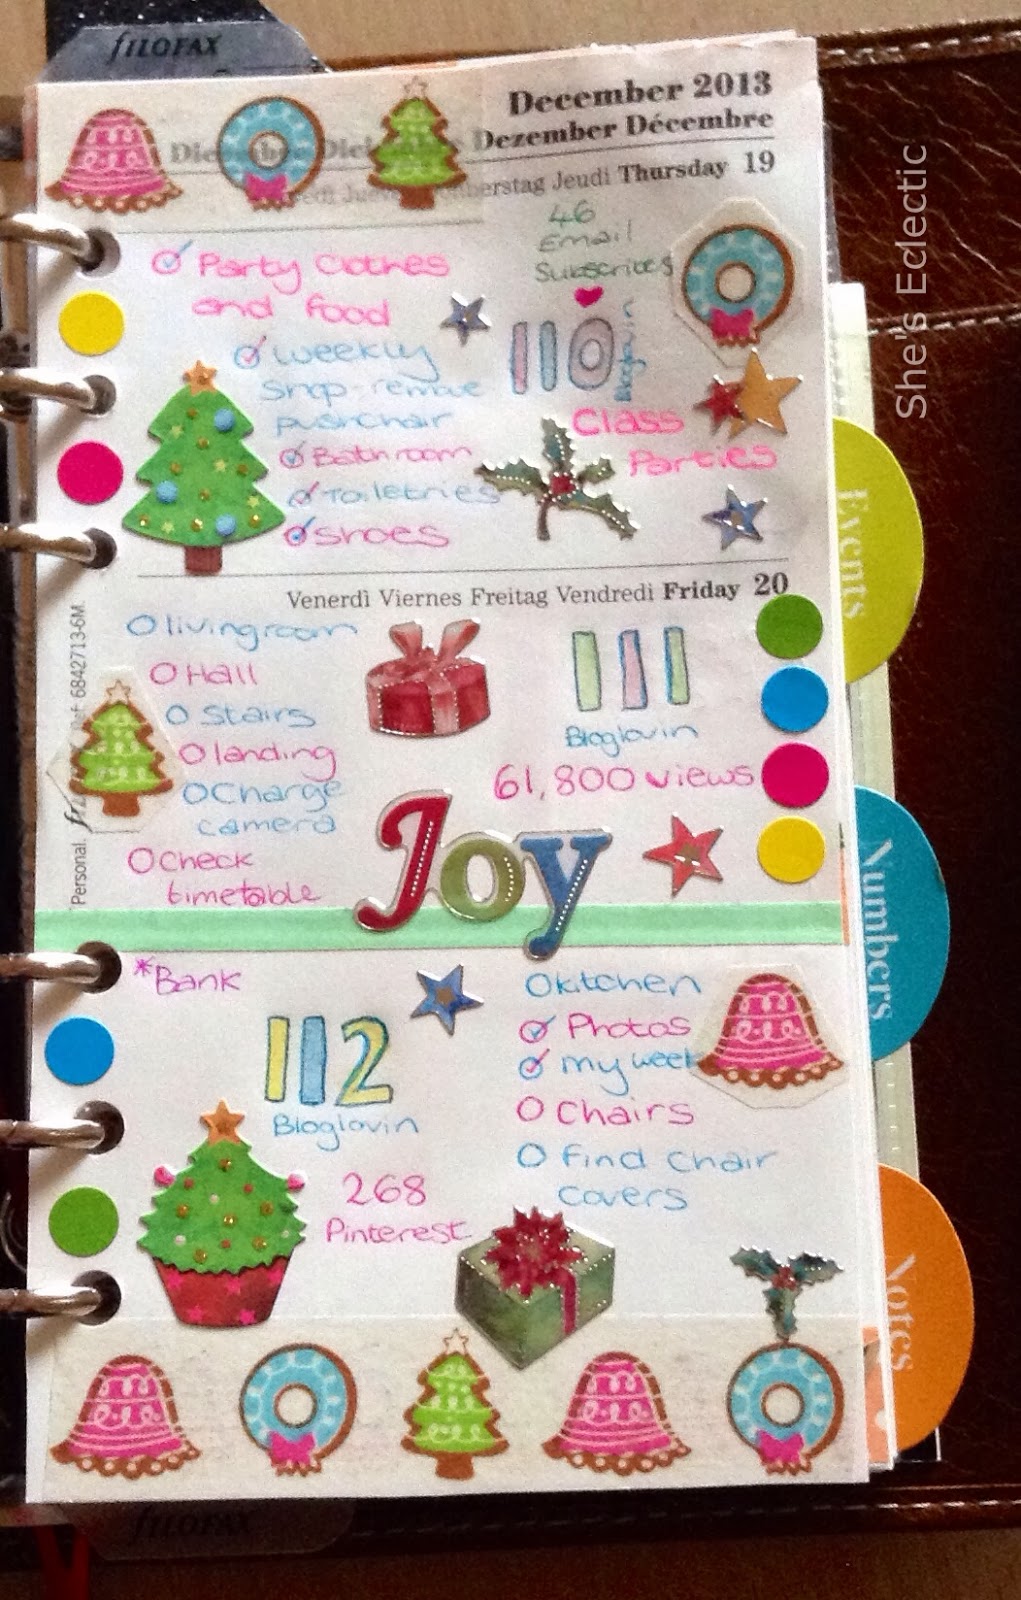 fILOFAX
December 2013
Dezember Décembre
Jeudi Thursday 19
46
Email
Subscribes
Party Clothes
and food
weekly
shop - remove
pushchair
Bathroom
Toiletries
shoes
110
Bloglovin
Class
Parties
Venerdì Viernes Freitag Vendredi Friday 20
livingroom
Hall
Stairs
landing
Charge
camera
check
timetable
111
Bloglovin
61,800 views
Joy
Personal.
6842713-6M.
*Bank
112
Bloglovin
268
Pinterest
kitchen
Photos
my week
Chairs
find chair
covers
fILOFAX
She's Eclectic
Events
Numbers
Notes